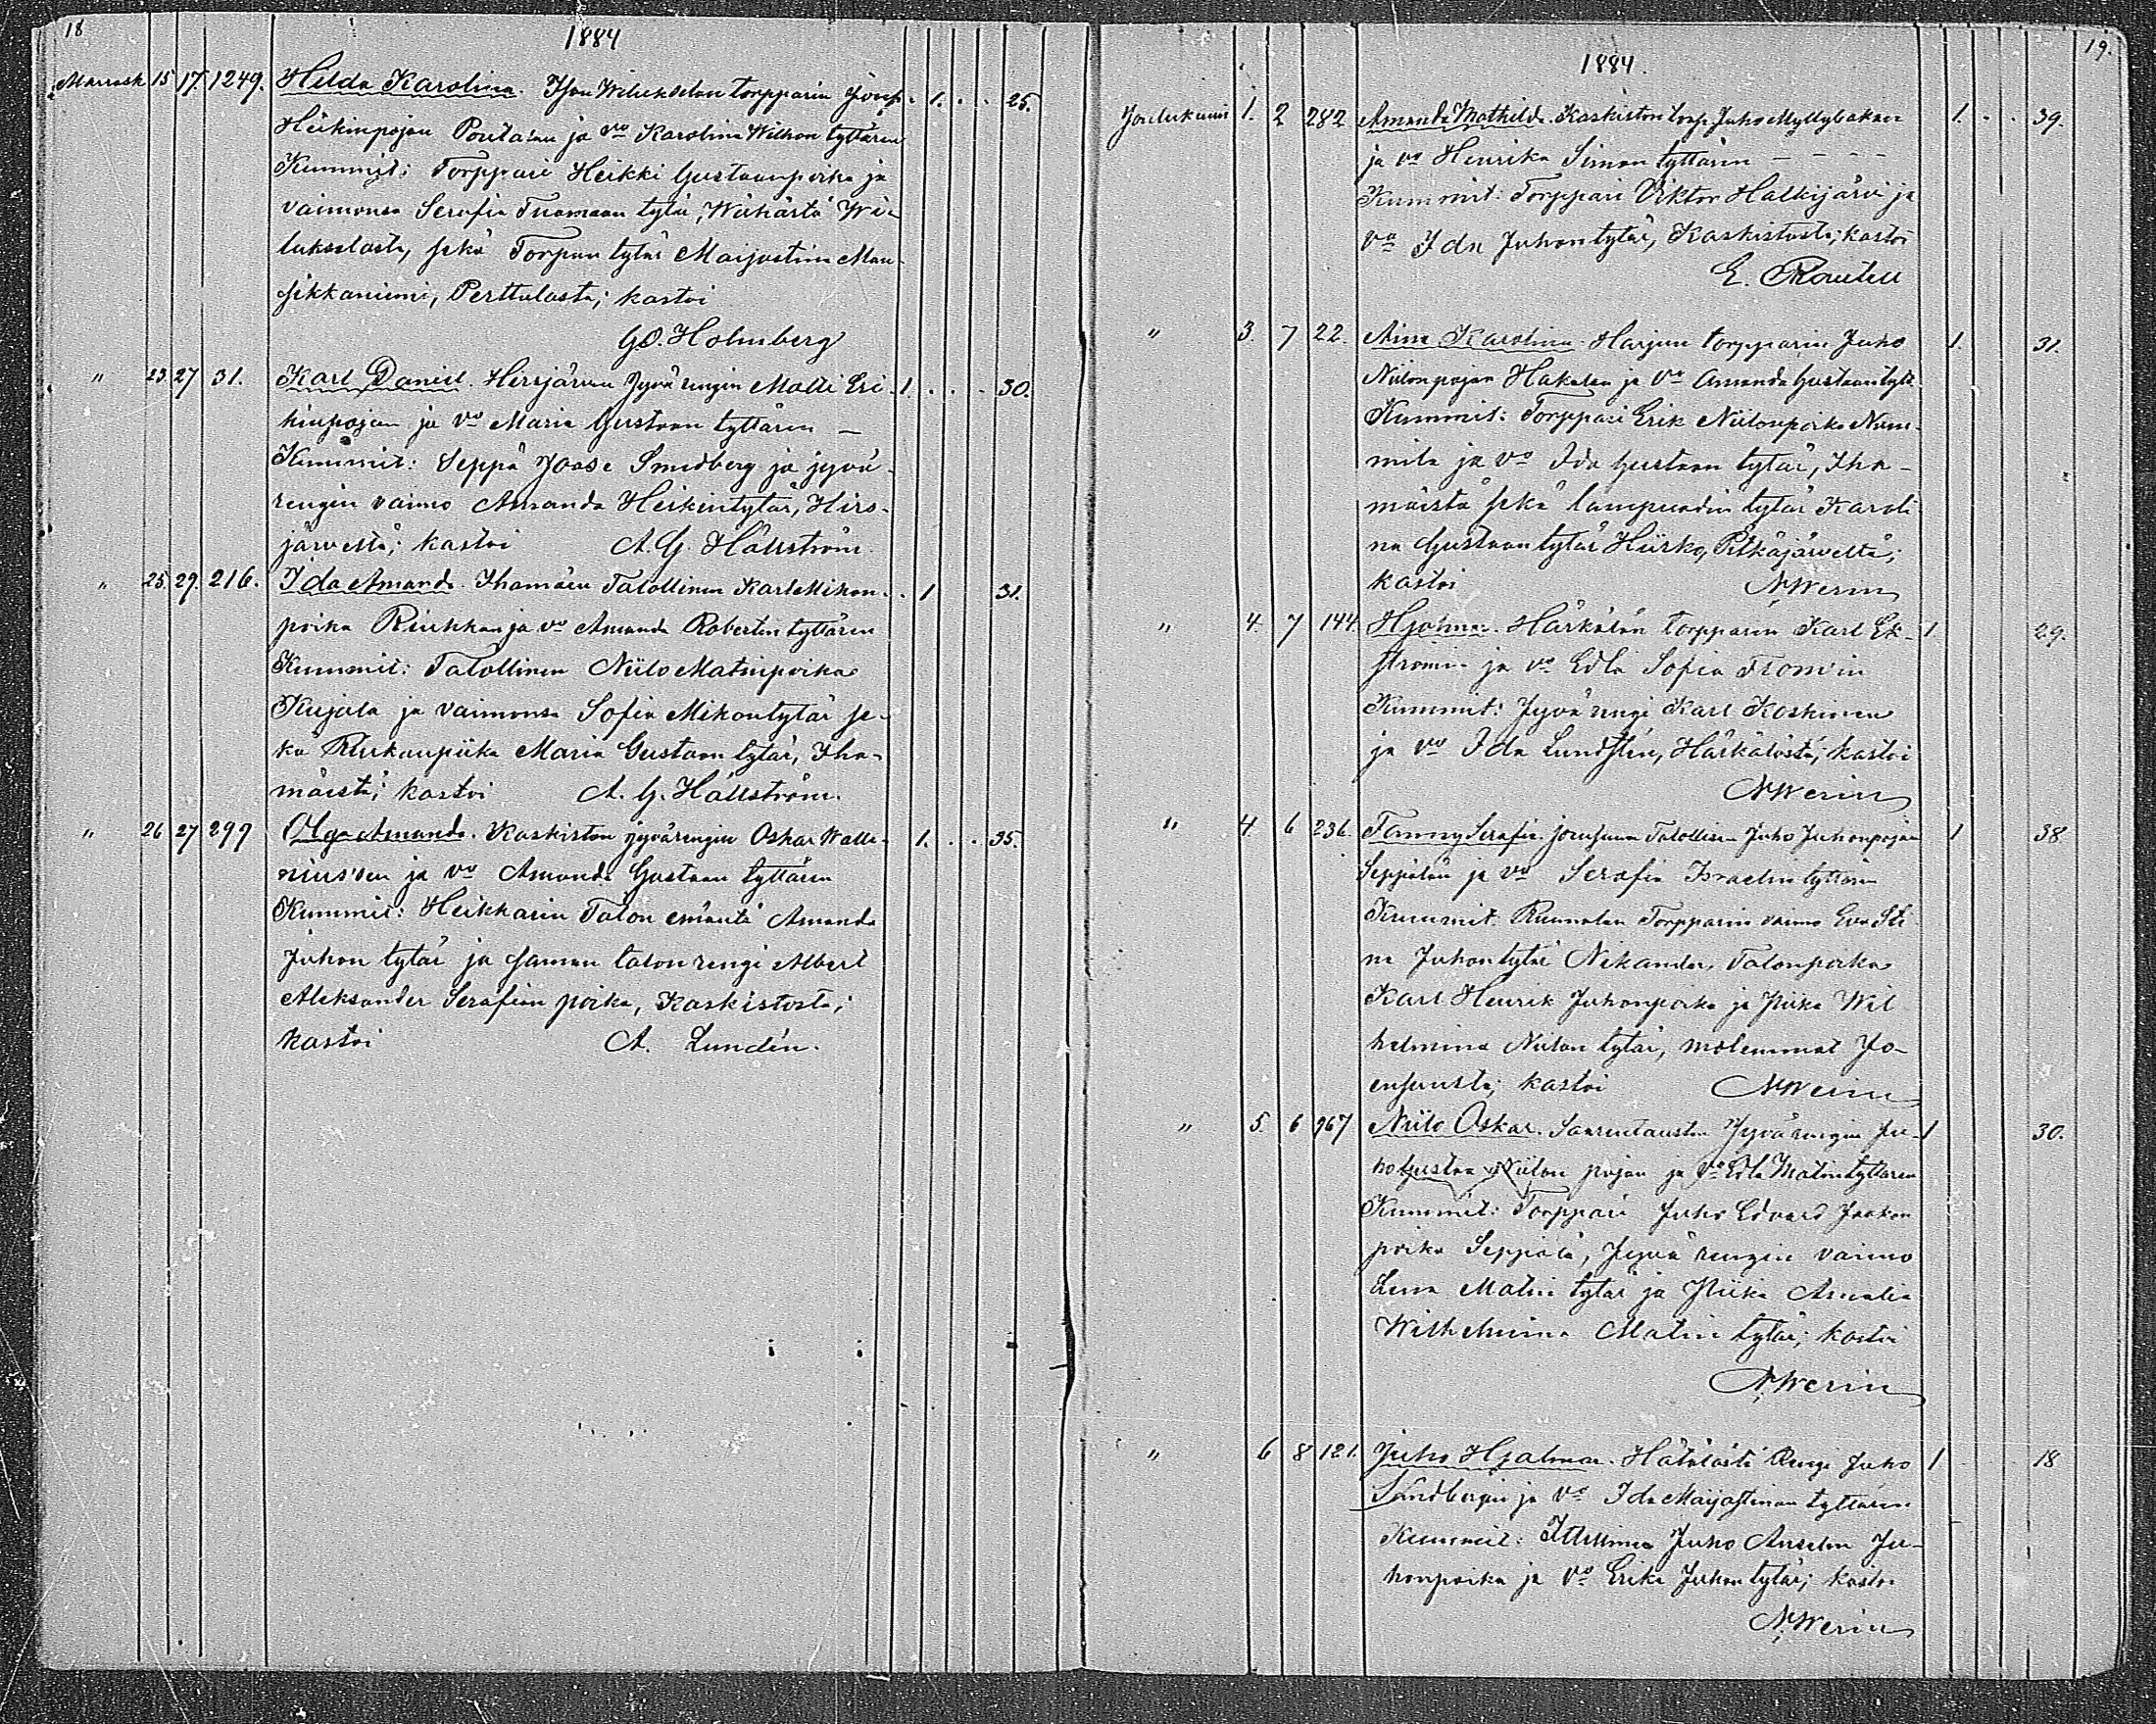 18
1884
Marrask 15 17. 1249. Hilda Karolina. Ison Wilukselan torpparin Joosep. 1. 25.
Heikinpojan Poutalan ja vo Karolina Wilhon tyttären
Kummit: Torppari Heikki Gustaanpoika ja
vaimonsa Serafia Tuomaan tytär, Wähästä Wi-
lukselasta, sekä Torpan tytär Maijastina Man-
sikkaniemi, Perttulasta; kastoi
G.O. Holmberg
" 23. 27 31. Karl Daniel. Hirsjärven Jyvärengin Matti Eri- 1. 30.
kinpojan ja vo Maria Gustaan tyttären —
Kummit: Seppä Joose Smedberg ja jyvä-
rengin vaimo Amanda Heikintytär, Hirs-
järveltä; kastoi A. G. Hällström.
" 25. 29. 216. Ida Amanda. Ihamäen Talollinen Karl Mikon- 1 31.
poika Riukkan ja vo Amanda Robertin tyttären
Kummit: Talollinen Niilo Matinpoika
Kujala ja vaimonsa Sofia Mikontytär se-
kä Riukanpiika Maria Gustaan tytär, Iha-
mäestä; kastoi A. G. Hällström.
" 26 27 299 Olga Amanda. Kaskiston jyvärengin Oskar Walle- 1. 35.
nius'sen ja vo Amanda Gustaan tyttären
Kummit: Heikkarin Talon emäntä Amanda
Juhon tytär ja saman talon rengi Albert
Aleksander Serafian poika, Kaskistosta;
kastoi A. Lundén.
19.
1884.
Joulukuun 1. 2 282 Amanda Mathilda. Kaskiston torp. Juho Myllyb 1. 39.
ja vo Henrika Simon tyttären – – – –
Kummit: Torppari Viktor Halkijärvi ja
vo Ida Juhontytär, Kaskistosta; kastoi
E. Rautell
" 3. 7 22. Aina Karolina. Harjun torpparin Juho 1. 31.
Niilonpojan Hakalan ja vo Amanda Gustaantytt.
Kummit: Torppari Erik Niilonpoika Num-
mila ja vo Ida Gustaan tytär, Iha-
mäistä sekä lampuodin tytär Karoli-
na Gustaantytär Hiirko, Pitkäjärveltä;
kastoi N. Werin
" 4. 7 144. Hjalmar. Härkälän torpparin Karl Ek- 1 29.
strömin ja vo Edla Sofia
Kummit: Jyvärengi Karl Koskinen
ja vo Ida Lundstén, Härkälästä; kastoi
N. Werin
" 4. 6 236. Fanny Serafia. Jouhsuun Talollisen Juho Juhonpojan 1 38
Seppälän ja vo Serafia Israelin tyttären
Kummit: Torpparin vaimo Eva Sti-
na Juhontytär Nikander, Talonpoika
Karl Henrik Juhonpoika ja Piika Wil-
helmina Niilon tytär, molemmat Jo-
ensuusta; kastoi N. Werin
" 5. 6 967 Niilo Oskar. Saarentaustan Jyvärengin Ju- 1 30.
ho Gustaa Niilon pojan ja vo Edla Matintyttären
Kummit: Torppari Juho Edvard Jaakon
poika Seppälä, Jyvä rengin vaimo
Lena Matin tytär ja Piika Amalia
Wilhelmina Matin tytär; kastoi
N. Werin
" 6 8 121. Juho Hjalmar. Hätilästä Rengi Juho 1 18
Sandbergin ja vo Ida Maijastinan tyttären
Kummit: Itsellinen Juho Anselm Ju-
honpoika ja vo Erika Juhontytär; kastoi
N. Werin